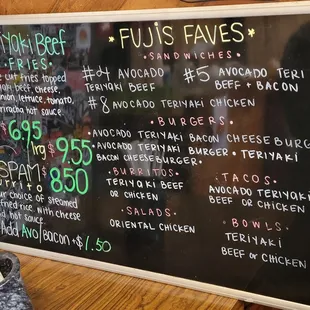 iyaki Beef
FRIES
cut fries topped
aki beef, cheese,
onion, lettuce, tomato,
sriracha hot sauce
$6.95
lrg $9.55
SPAM $8.50
urrito
our choice of steamed
fried rice, with cheese
and hot sauce.
Add Avo/bacon +$1.50
*FUJIS FAVES*
SANDWICHES
#4 AVOCADO
TERIYAKI BEEF
#5 AVOCADO TERI
BEEF + BACON
#8 AVOCADO TERIYAKI CHICKEN
BURGERS
• AVOCADO TERIYAKI BACON CHEESE BURG
• AVOCADO TERIYAKI BURGER • TERIYAKI
BACON CHEESEBURGER •
BURRITOS
TERIYAKI BEEF
OR CHICKEN
SALADS
ORIENTAL CHICKEN
TACOS
AVOCADO TERIYAKI
BEEF OR CHICKEN
BOWLS
TERIYAKI
BEEF OR CHICKEN